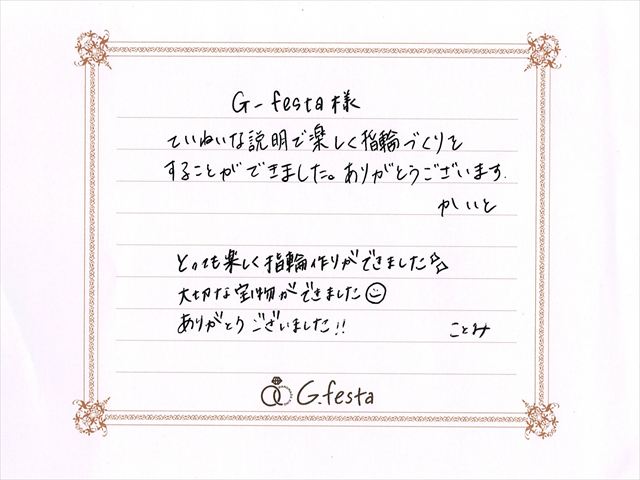 G-festa様
ていねいな説明で楽しく指輪づくりを
することができました。ありがとうございます.
かいと
とっても楽しく指輪作りができました☆
大切な宝物ができました☺
ありがとうございました!!
ことみ
G.festa